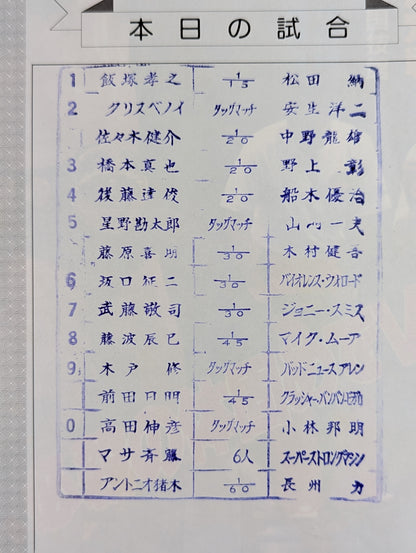 本日の試合
1 飯塚孝之 1/15 松田 納
2 クリスベノイ タッグマッチ 安生洋二
佐々木健介 1/20 中野龍雄
3 橋本真也 1/20 野上 彰
4 後藤達俊 1/20 船木優治
5 星野勘太郎 タッグマッチ 山 一夫
藤原喜明 1/30 木村健吾
6 坂口征二 1/30 バイオレンス・ウォロード
7 武藤敬司 1/30 ジョニー・スミス
8 藤波辰巳 1/45 マイク・ムーア
9 木戸 修 タッグマッチ バッドニュースアレン
前田日明 1/45 クラッシャー・バンバン・ビガロ
0 高田伸彦 タッグマッチ 小林邦明
マサ斉藤 6人 スーパーストロングマシン
アントニオ猪木 1/60 長州 力